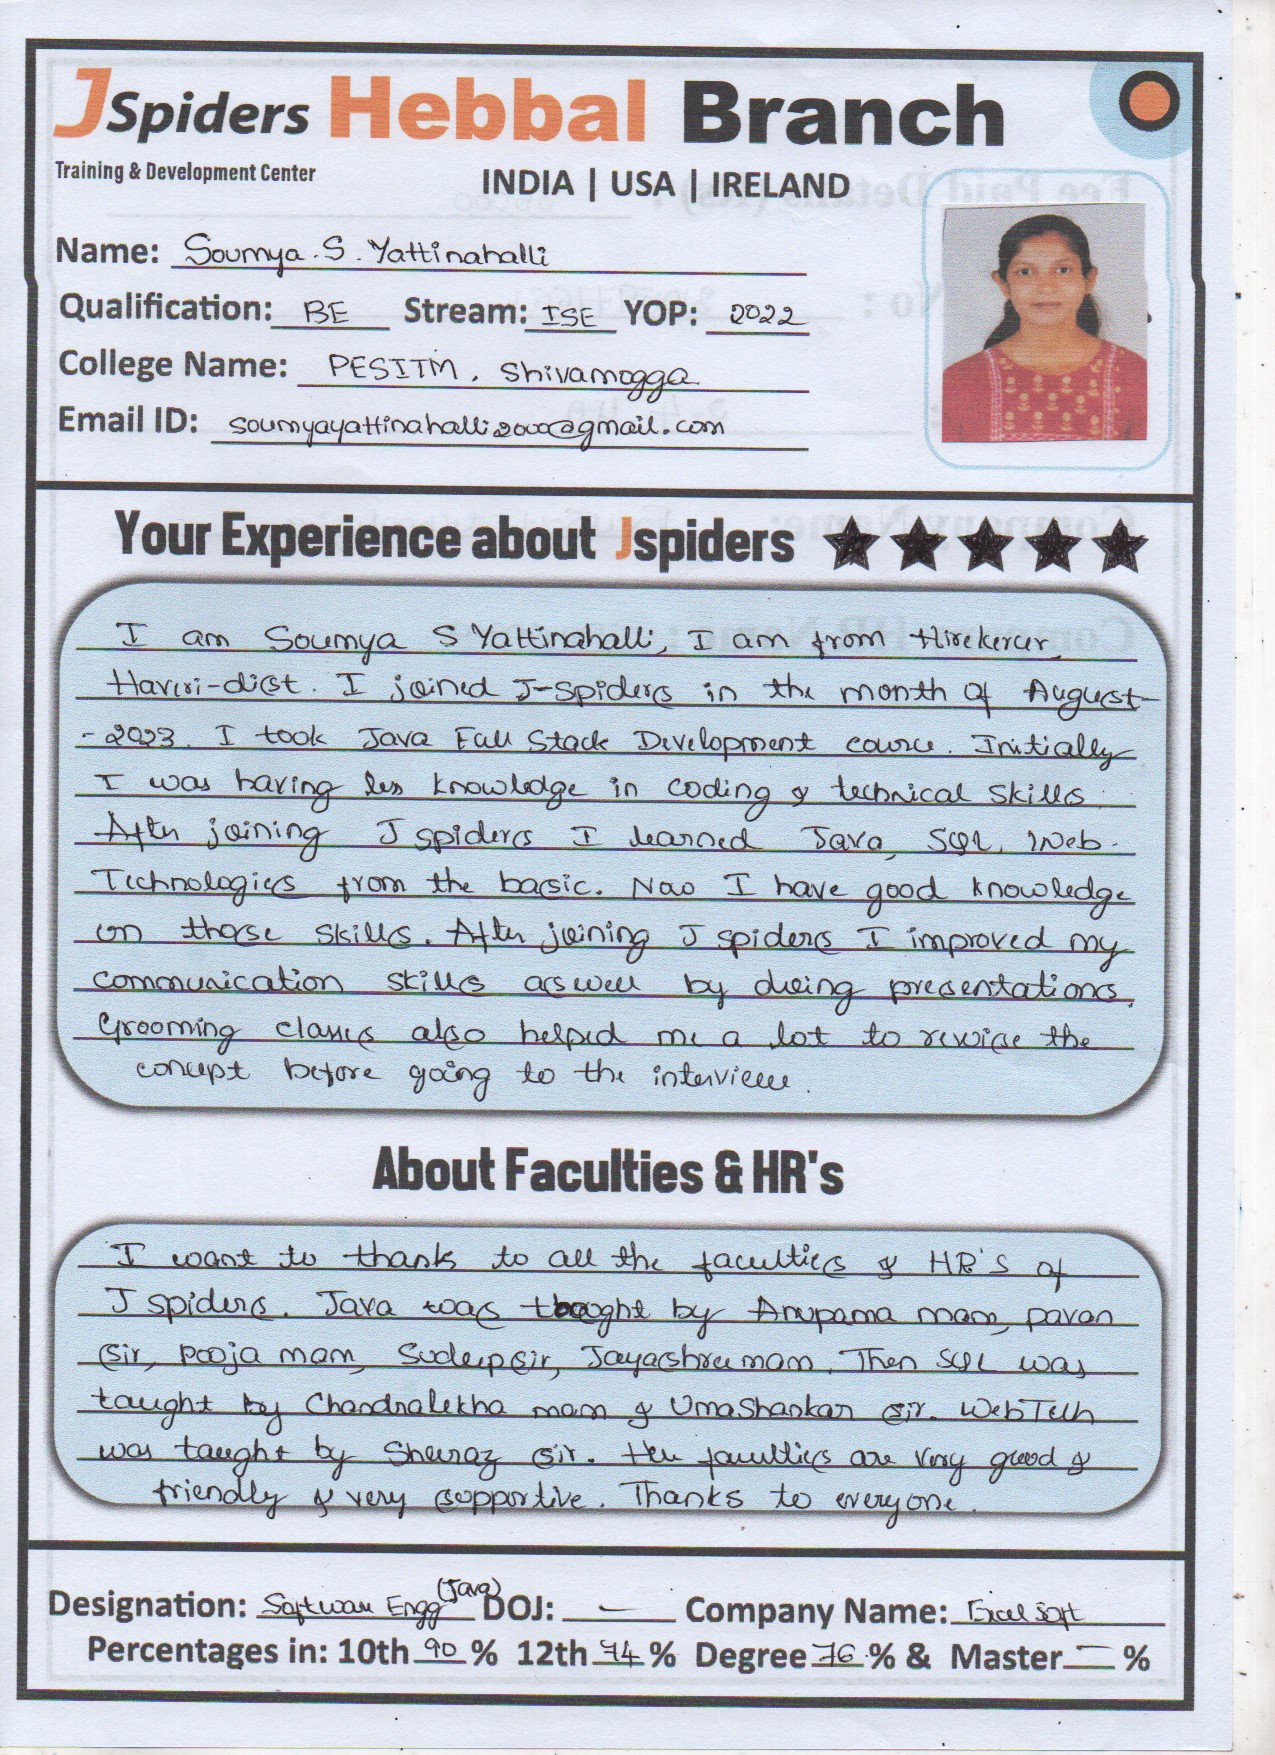 JSpiders Hebbal Branch
Training & Development Center
INDIA | USA | IRELAND
Name: Soumya . S . Yattinahalli
Qualification: BE Stream: ISE YOP: 2022
College Name: PESITM , Shivamogga
Email ID: soumyayattinahalli2000@gmail.com
Your Experience about Jspiders
I am Soumya S Yattinahalli, I am from Hirekerur,
Haveri-dist. I joined J-Spiders in the month of August-
- 2023. I took Java Full Stack Development course. Initially
I was having less knowledge in coding & technical skills.
After joining J spiders I learned Java, SQL, Web-
Technologies from the basic. Now I have good knowledge
on those skills. After joining J spiders I improved my
communication skills aswell by doing presentations.
Grooming classes also helped me a lot to revise the
concept before going to the interview.
About Faculties & HR's
I want to thanks to all the faculties & HR's of
J spiders. Java was taught by Anupama mam, pavan
sir, pooja mam, Sudeep sir, Jayashree mam. Then SQL was
taught by Chandralekha mam & UmaShankar sir. WebTech
was taught by Sheeraz sir. faculties are very good &
friendly & very supportive. Thanks to everyone.
Designation: Software Engg (Java) DOJ: — Company Name: Excel Soft
Percentages in: 10th 90 % 12th 74 % Degree 76 % & Master — %